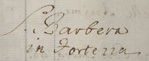 S. Barbera
in Forterra